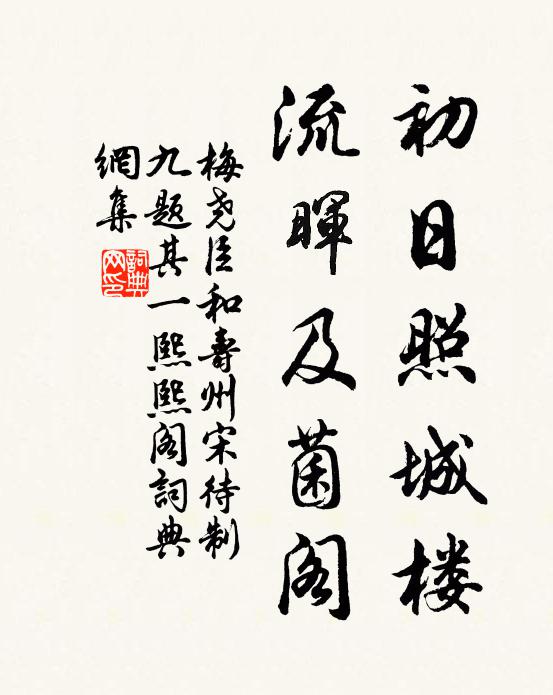 初日照城楼
流暉及菌阁
梅尧臣和壽州宋待制
九题其一熙熙阁詞典
網集
詞典网印